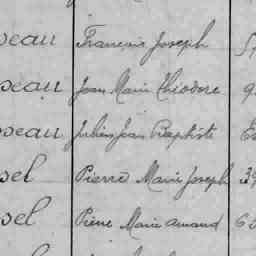 seau François Joseph
seau Jean Marie Théodore 9
seau Julien Jean Baptiste
sel Pierre Marie Joseph 39
sel Pierre Marie Armand 60